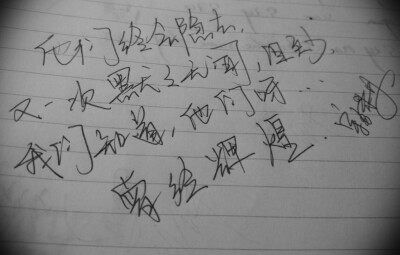 他们终会隐去,
又一次黑天之云
我们知道,他们呀…
曾经辉煌.